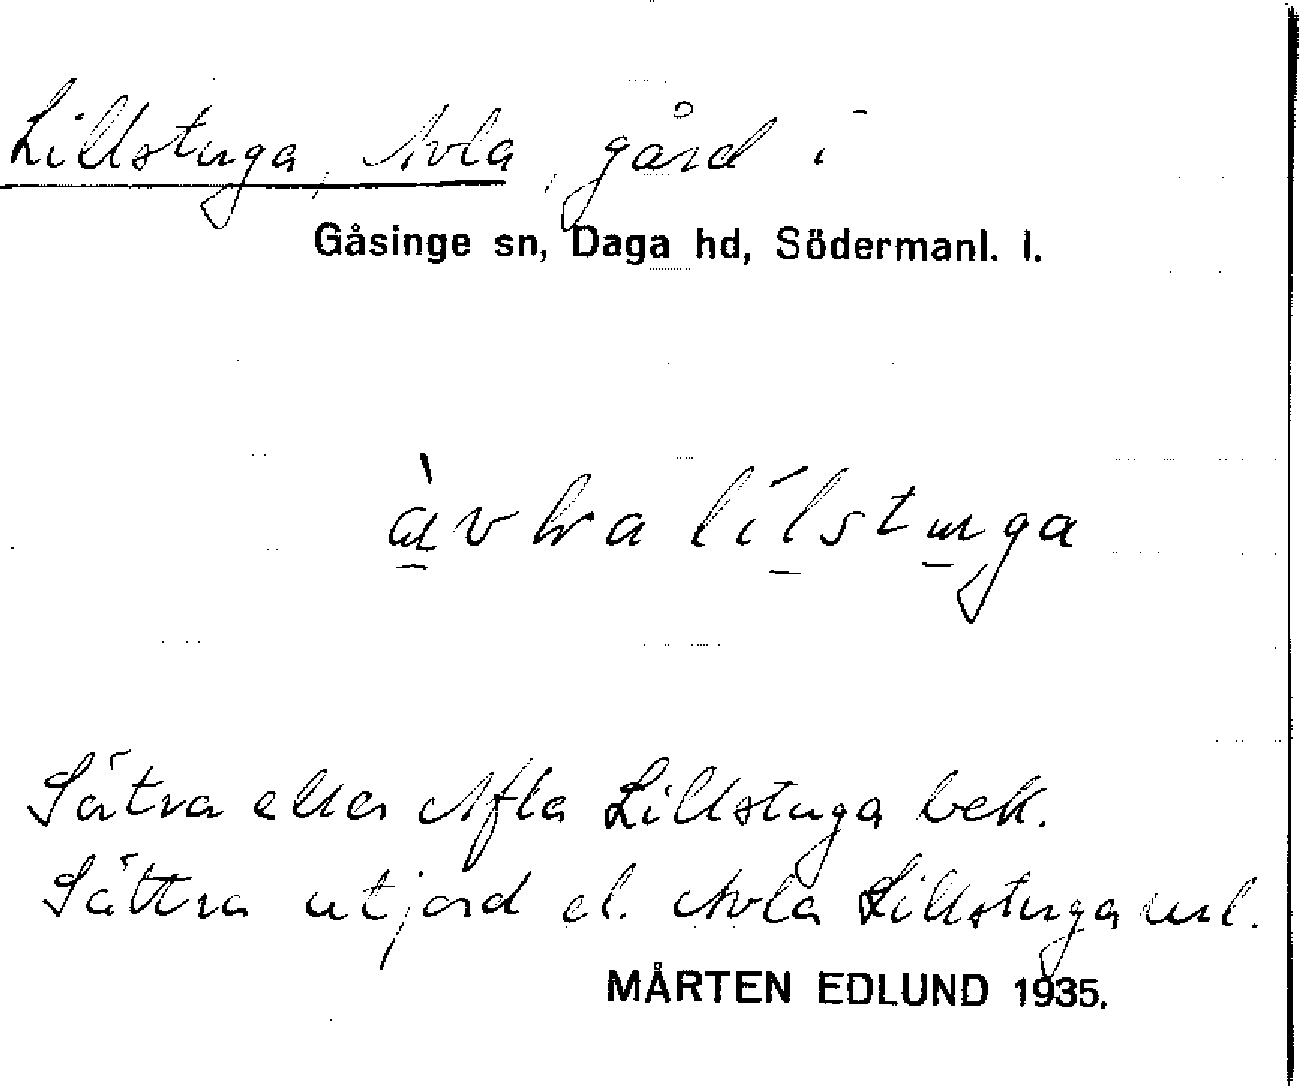 Lillstuga, Avla, gård i
Gåsinge sn, Daga hd, Södermanl. l.
lilstuga
Sätra eller Afla Lillstuga bek.
Sättra utjord el. Avla Lillstuga
MÅRTEN EDLUND 1935.